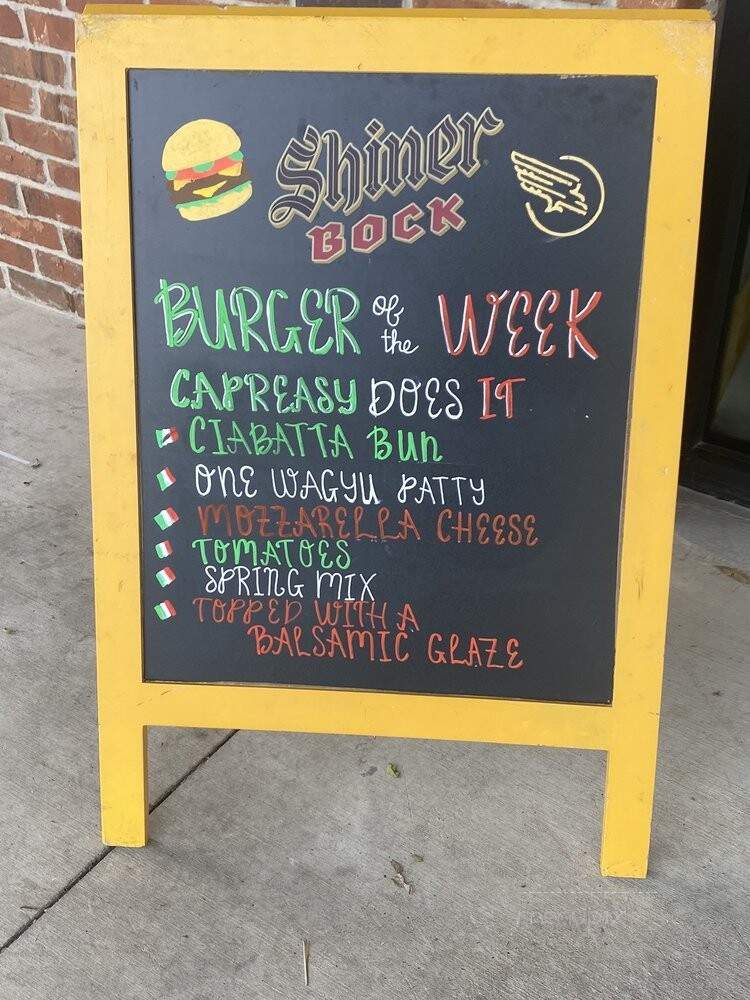 Shiner
BOCK
BURGER of the WEEK
CAPREASY DOES IT
CIABATTA BUN
ONE WAGYU PATTY
MOZZARELLA CHEESE
TOMATOES
SPRING MIX
TOPPED WITH A
BALSAMIC GLAZE